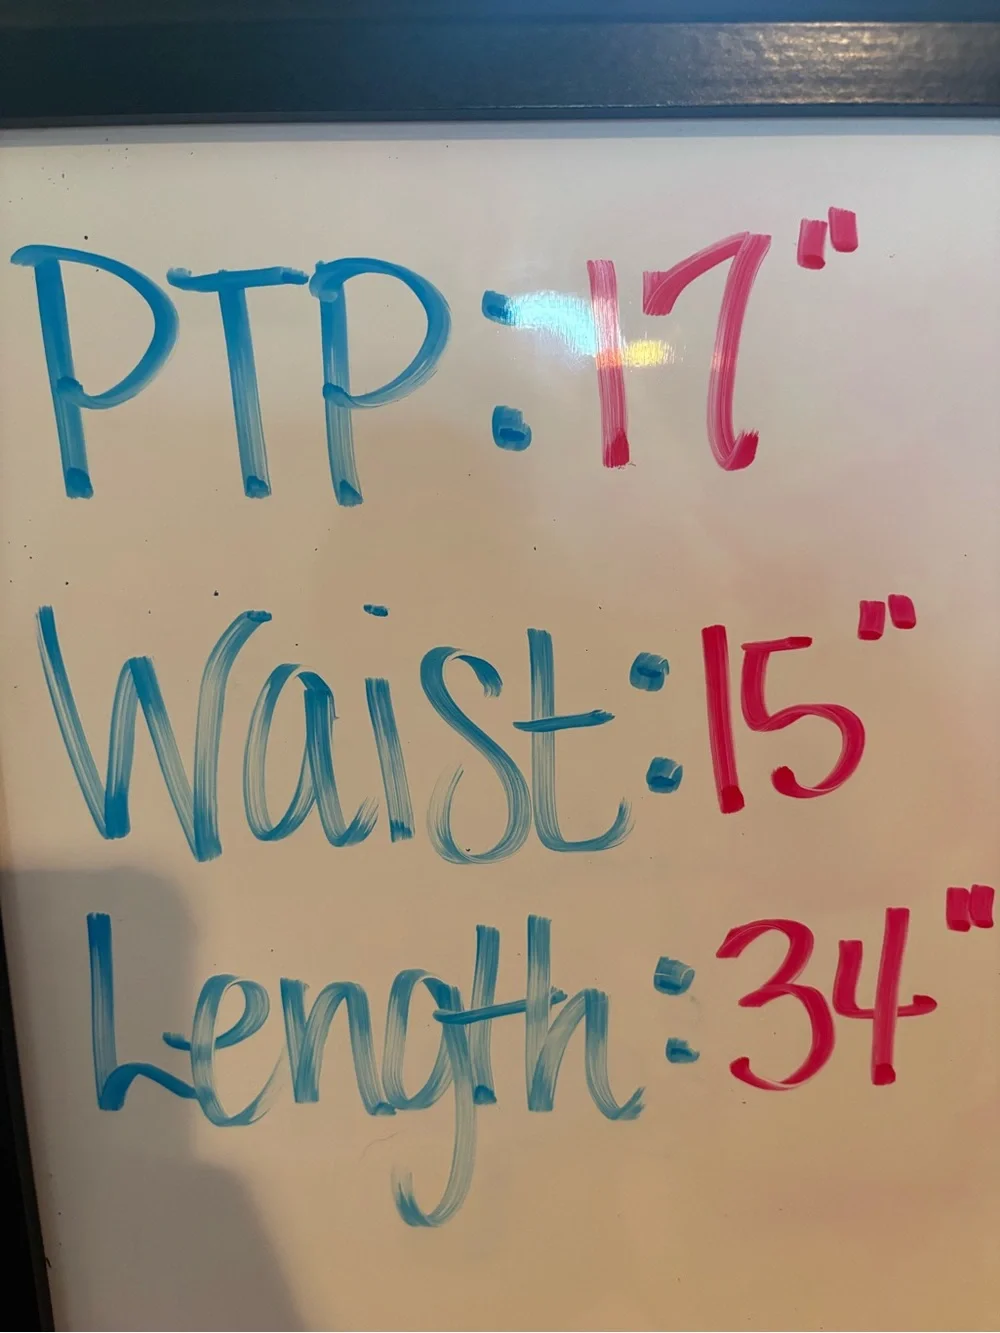 PTP: 17"
Waist: 15"
Length: 34"